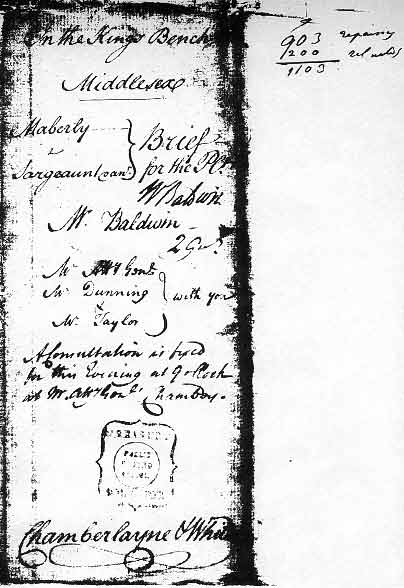 In the Kings Bench
Middlesex
Maberly
v
Sargeaunt and anr.
Brief
for the Plt.
W Baldwin
Mr. Baldwin
2 Gs.
Mr. Atty Genl.
Mr. Dunning
Mr. Taylor
with you
A Consultation is fixed
for this Evening at 9 oClock
at Mr. Atty Genls. Chambers.
TREASURY
PUBLIC
RECORD
Chamberlayne & White
903
200
1103